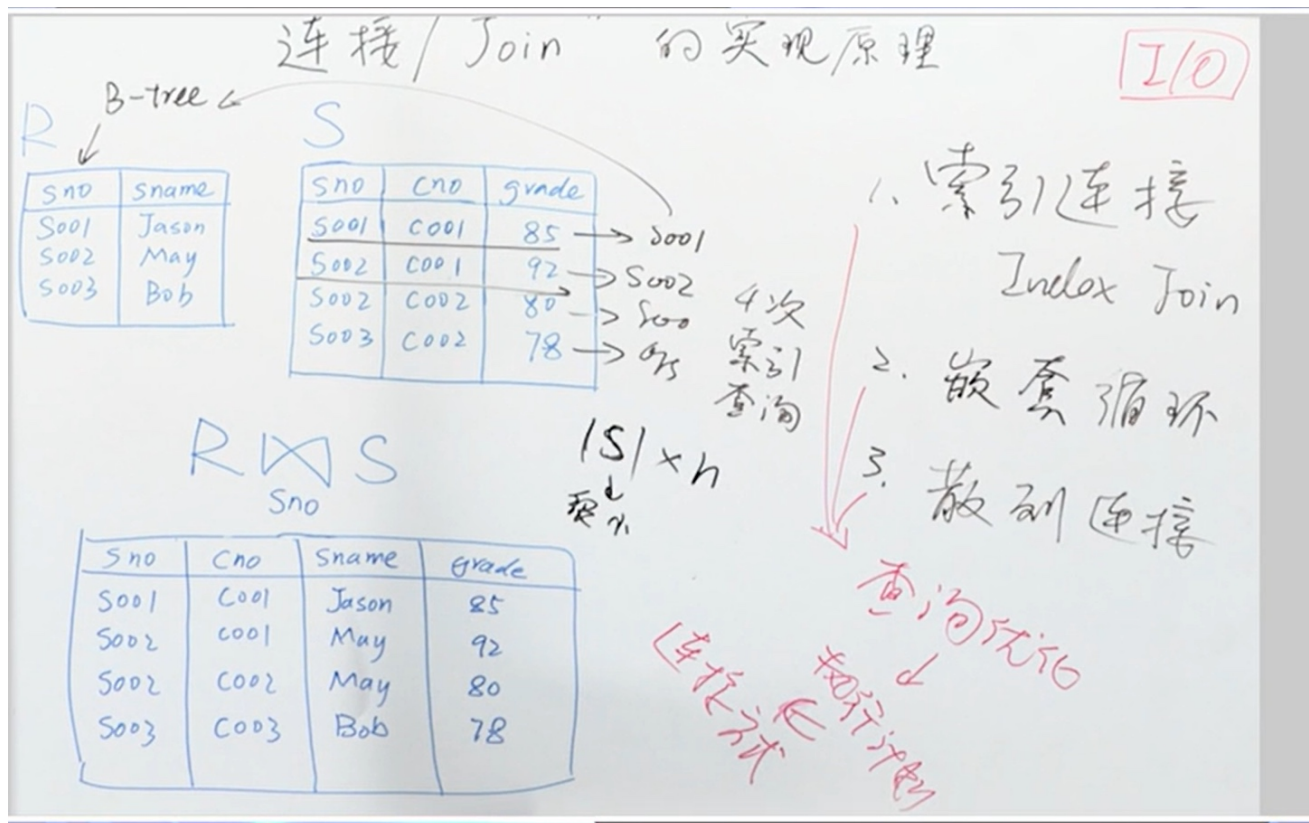 连接/Join"的实现原理
I/O
B-tree
R
S
sno sname
S001 Jason
S002 May
S003 Bob
sno cno grade
S001 C001 85
S002 C001 92
S002 C002 80
S003 C002 78
S001
S002
4次
索引
查询
|S|×n
R⋈S
Sno
Sno Cno Sname Grade
S001 C001 Jason 85
S002 C001 May 92
S002 C002 May 80
S003 C003 Bob 78
1. 索引连接
Index Join
2. 嵌套循环
3. 散列连接
查询优化
执行计划
连接方式